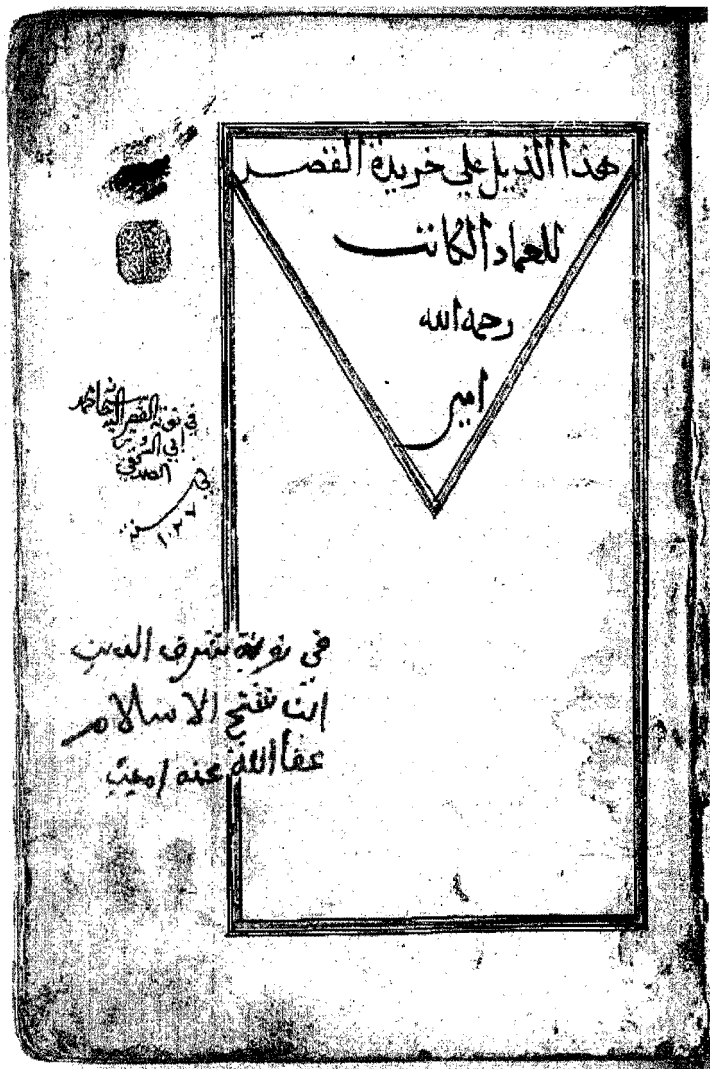 هذا الذيل على خريدة القصر
للعماد الكاتب
رحمه الله
امين
في نوبة الفقير
الصديقي
في
سنة
١٠٢٧
في نوبة شرف الدين
ابن شيخ الاسلام
عفا الله عنه امين